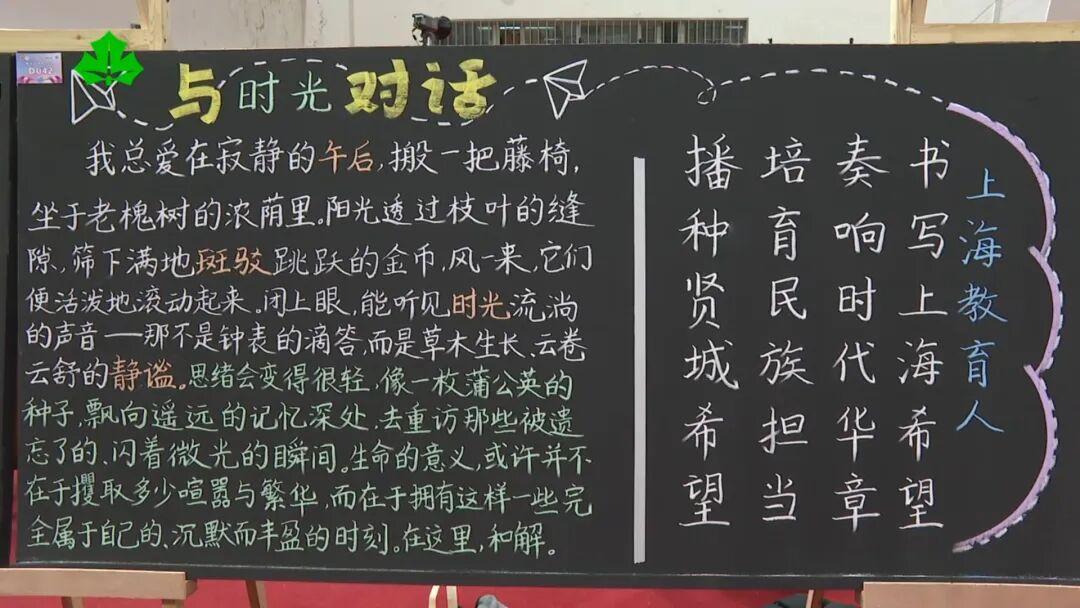 D042
与时光对话
我总爱在寂静的午后,搬一把藤椅,
坐于老槐树的浓荫里。阳光透过枝叶的缝
隙,筛下满地斑驳跳跃的金币,风一来,它们
便活泼地滚动起来。闭上眼,能听见时光流淌
的声音——那不是钟表的滴答,而是草木生长、云卷
云舒的静谧。思绪会变得很轻,像一枚蒲公英的
种子,飘向遥远的记忆深处,去重访那些被遗
忘了的、闪着微光的瞬间。生命的意义,或许并不
在于攫取多少喧嚣与繁华,而在于拥有这样一些完
全属于自己的、沉默而丰盈的时刻。在这里,和解。
上海教育人
书写上海希望
奏响时代华章
培育民族担当
播种贤城希望